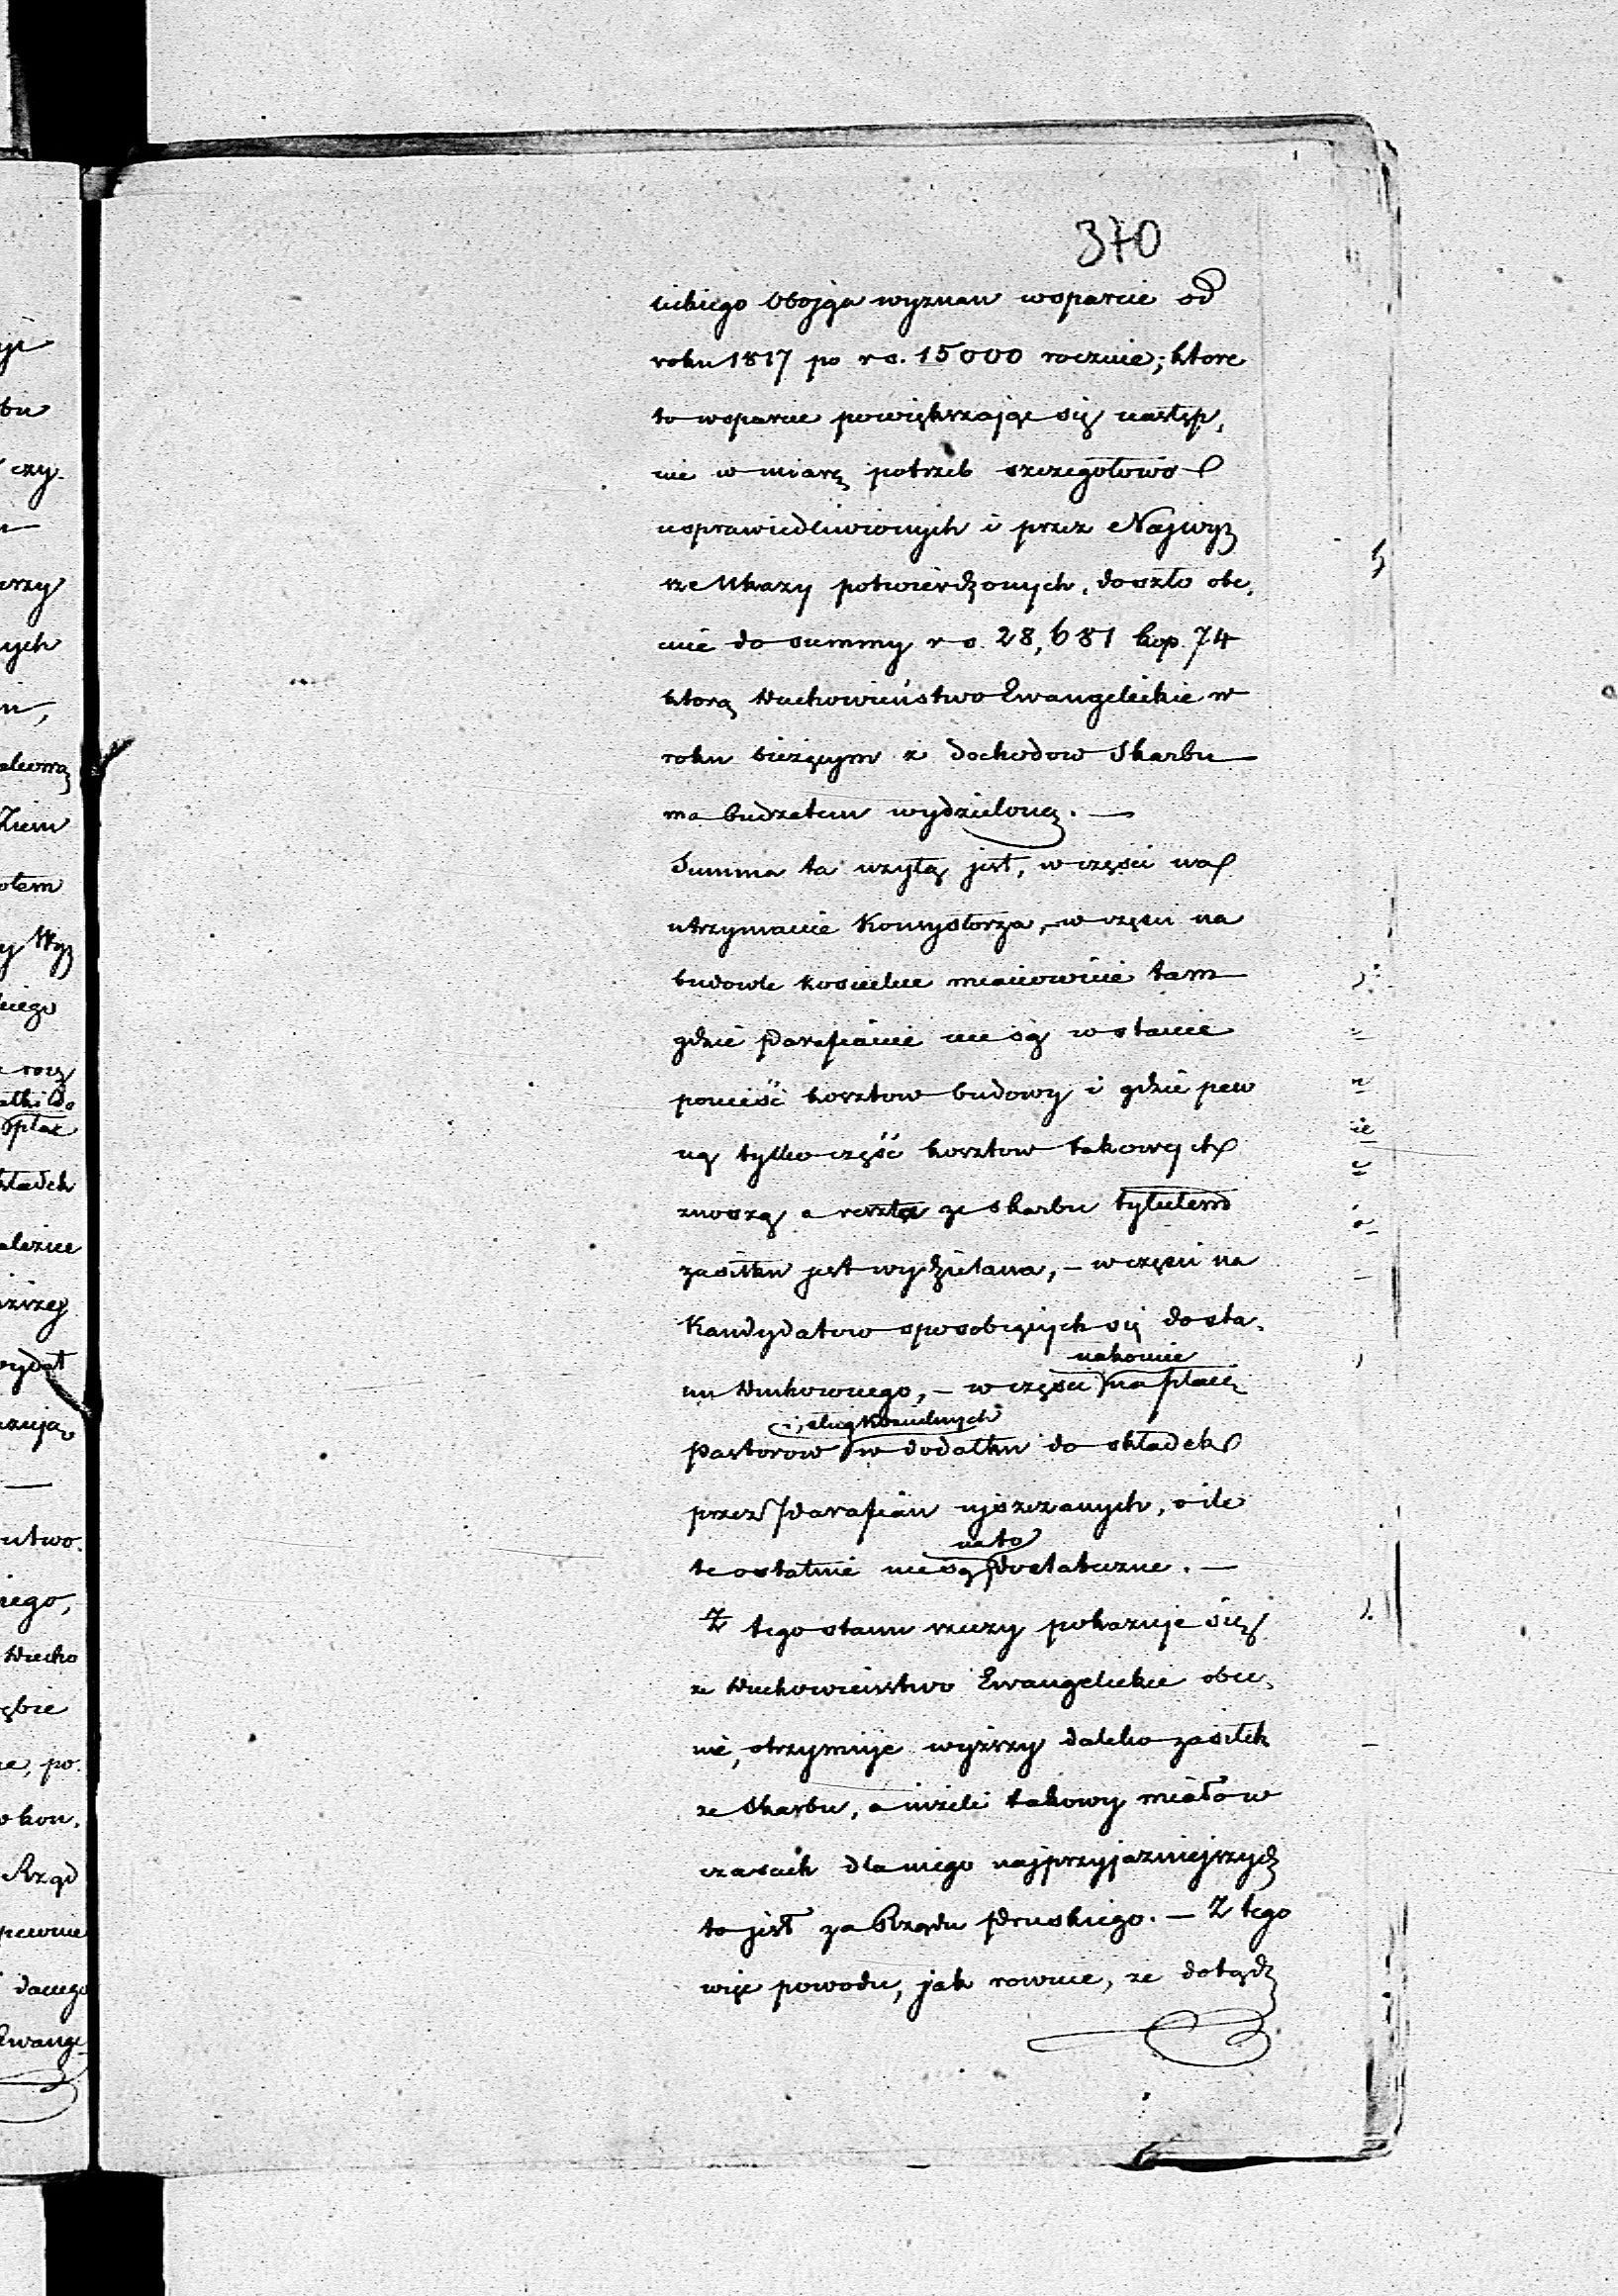 370
lickiego obojga wyznan wsparcie od
roku 1817 po rs. 15000 rocznie; ktore
to wsparcie powiększając się następ,
nie w miarę potrzeb szczegołowo
usprawiedliwionych i przez Najwyż
sze Ukazy potwierdzonych, doszło obe,
cnie do summy rs. 28,681 kop. 74
ktorą Duchowieństwo Ewangelickie w
roku bieżącym z dochodow Skarbu
ma budzetem wydzieloną. —
Summa ta użytą jest, w części na
utrzymanie Konsystorza, w częsci na
budowle koscielne mianowicie tam
gdzie Parafianie nie są w stanie
ponieść kosztow budowy i gdzie pew
ną tylko część kosztow takowych
znoszą a reszta ze skarbu tytułem
zasiłku jest wydzielana, — w częsci na
Kandydatow sposobiących się do sta,
nakoniec
nu Duchownego, — w części na płacę
i sług Koscielnych
Pastorow w dodatku do składek
przez Parafian uiszczanych, o ile
na to
te ostatnie nie są dostateczne. —
Z tego stanu rzeczy pokazuje się
że Duchowieństwo Ewangelickie obec,
nie, otrzymuje wyższy daleko zasiłek
ze Skarbu, a niżeli takowy miało w
czasach dla niego najprzyjazniejszych
to jest za Rządu Pruskiego. — Z tego
więc powodu, jak rownie, że dotąd